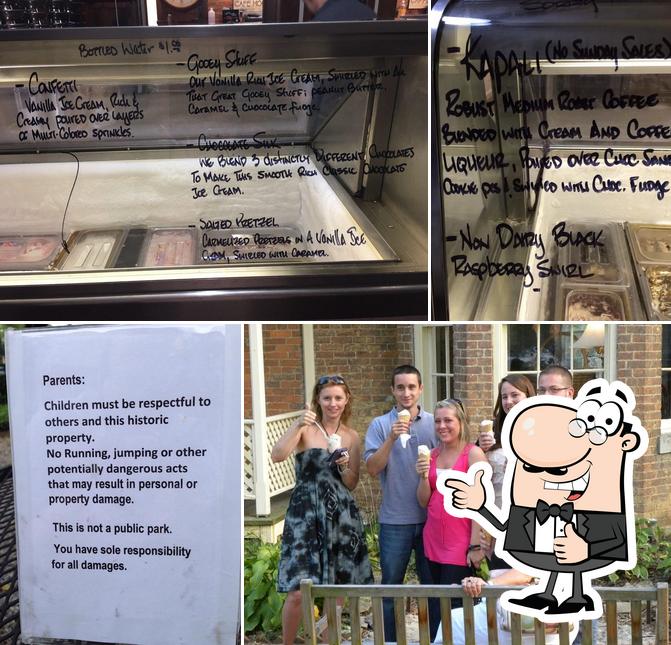 Bottled Water $1.00
- Confetti
Vanilla Ice Cream, Rich &
Creamy poured over layers
of Multi-Colored Sprinkles.
- Gooey Stuff
Our Vanilla Rich Ice Cream, Swirled with all
that Great Gooey Stuff; peanut butter,
Caramel & Chocolate Fudge.
- Chocolate Silk
We Blend 3 distinctly different chocolates
to make this smooth rich classic chocolate
Ice Cream.
- Salted Pretzel
Carmelized Pretzels in a Vanilla Ice
Cream, Swirled with Caramel.
- Kapali (No Sunday Sales)
Robust Medium Roast Coffee
Blended with Cream and Coffee
Liqueur, Poured over Choc Sand
Cookie pcs & Swirled with Choc. Fudge
- Non Dairy Black
Raspberry Swirl
Parents:
Children must be respectful to
others and this historic
property.
No Running, jumping or other
potentially dangerous acts
that may result in personal or
property damage.
This is not a public park.
You have sole responsibility
for all damages.